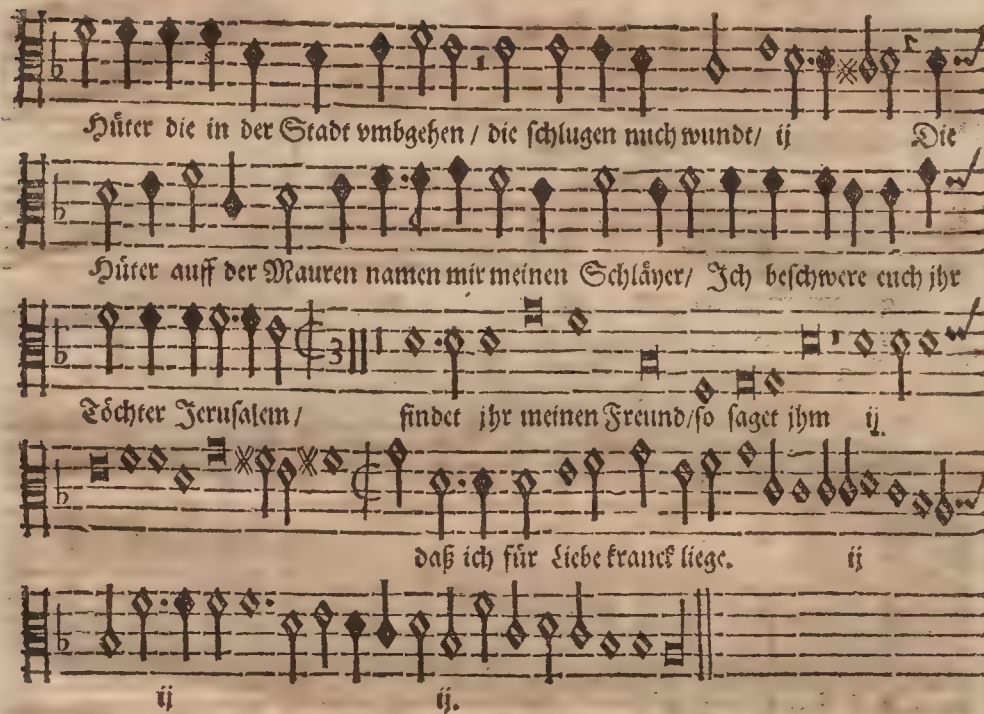 Hüter die in der Stadt vmbgehen / die schlugen mich wundt / ij Die
Hüter auff der Mauren namen mir meinen Schläyer / Ich beschwere euch jhr
Töchter Jerusalem / findet jhr meinen Freund / so saget jhm ij.
daß ich für Liebe kranck liege. ij
ij ij.